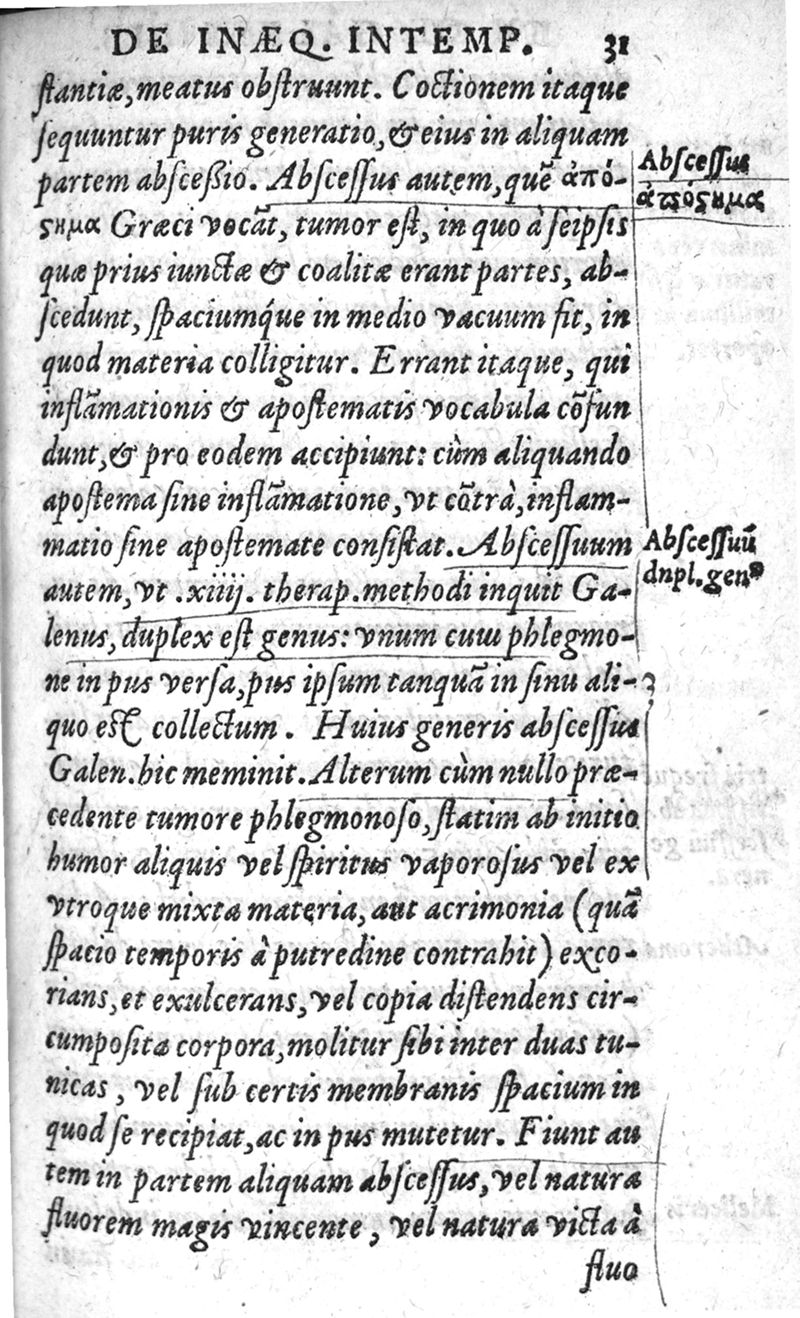 DE INÆQ. INTEMP. 31
stantiæ, meatus obstruunt. Coctionem itaque
sequuntur puris generatio, & eius in aliquam
partem abscessio. Abscessus autem, quẽ ἀπό-
Abscessus
ϛημα Græci vocãt, tumor est, in quo à seipsis
ἀπόϛημα
quæ prius iunctæ & coalitæ erant partes, ab-
scedunt, spaciumq́ue in medio vacuum fit, in
quod materia colligitur. Errant itaque, qui
inflãmationis & apostematis vocabula cõfun
dunt, & pro eodem accipiunt: cùm aliquando
apostema sine inflãmatione, vt cõtrà, inflam-
matio sine apostemate consistat. Abscessuum
Abscessuũ
autem, vt .xiiij. therap. methodi inquit Ga-
dupl. genꝰ
lenus, duplex est genus: vnum cum phlegmo-
ne in pus versa, pus ipsum tanquã in sinu ali-
quo est collectum. Huius generis abscessus
Galen. hic meminit. Alterum cùm nullo præ-
cedente tumore phlegmonoso, statim ab initio
humor aliquis vel spiritus vaporosus vel ex
vtroque mixta materia, aut acrimonia (quã
spacio temporis à putredine contrahit) exco-
rians, et exulcerans, vel copia distendens cir-
cumposita corpora, molitur sibi inter duas tu-
nicas, vel sub certis membranis spacium in
quod se recipiat, ac in pus mutetur. Fiunt au
tem in partem aliquam abscessus, vel natura
fluorem magis vincente, vel natura victa à
fluo